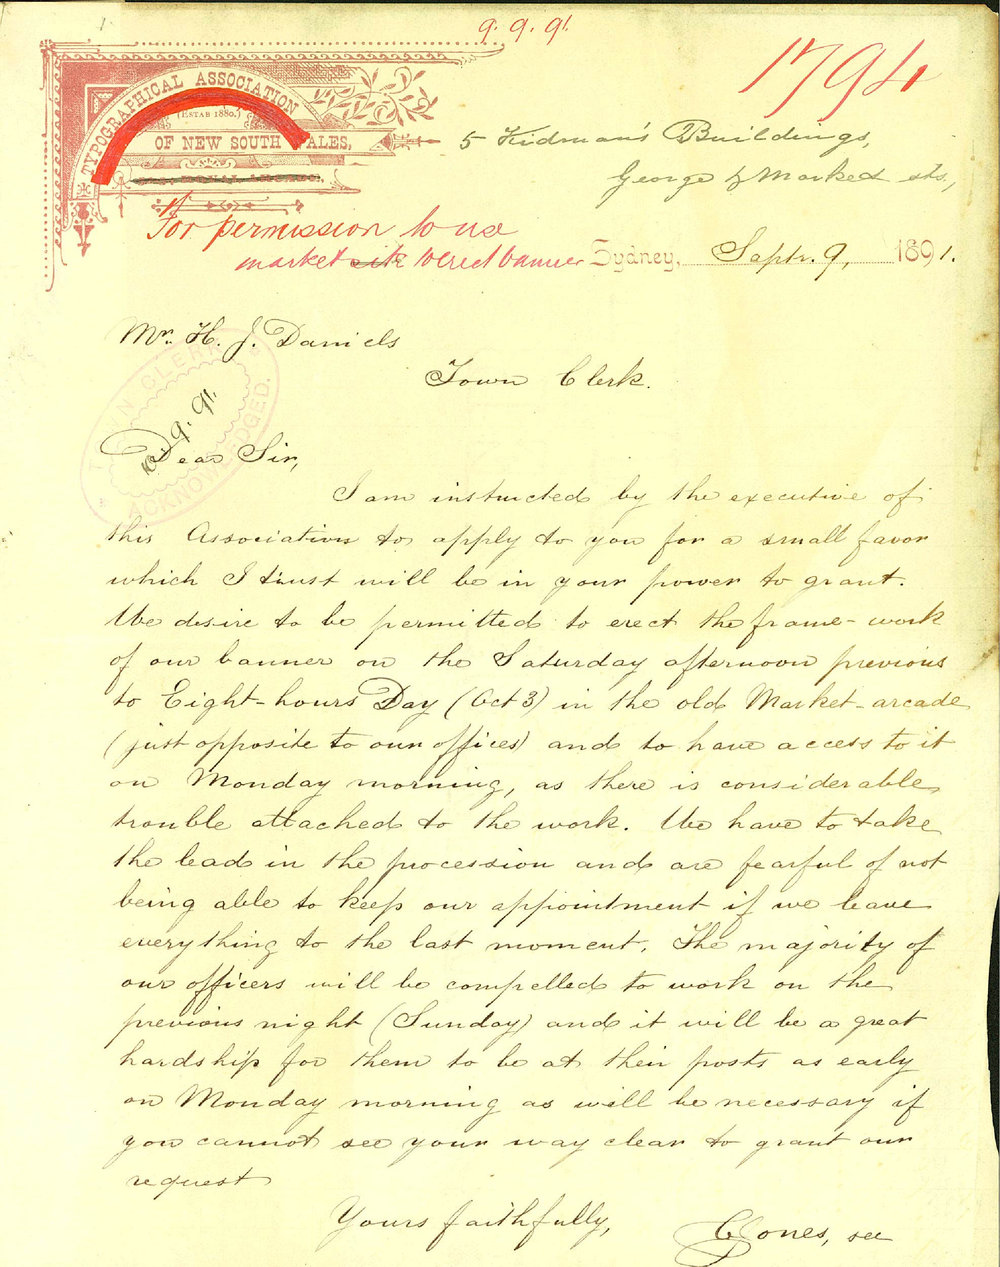 9.9.91.
1794
TYPOGRAPHICAL ASSOCIATION
(ESTAB 1880.)
OF NEW SOUTH WALES,
5 Kidman's Buildings,
George & Market sts.,
For permission to use
market site to erect banner
Sydney, Septr. 9, 1891.
Mr. H. J. Daniels
Town Clerk.
TOWN CLERK
10.9.91.
ACKNOWLEDGED.
Dear Sir,
I am instructed by the executive of
this Association to apply to you for a small favor
which I trust will be in your power to grant.
We desire to be permitted to erect the frame-work
of our banner on the Saturday afternoon previous
to Eight-hours Day (Oct 3) in the old Market-arcade
(just opposite to our offices) and to have access to it
on Monday morning, as there is considerable
trouble attached to the work. We have to take
the lead in the procession and are fearful of not
being able to keep our appointment if we leave
everything to the last moment. The majority of
our officers will be compelled to work on the
previous night (Sunday) and it will be a great
hardship for them to be at their posts as early
on Monday morning as will be necessary if
you cannot see your way clear to grant our
request
Yours faithfully,
C Jones, sec